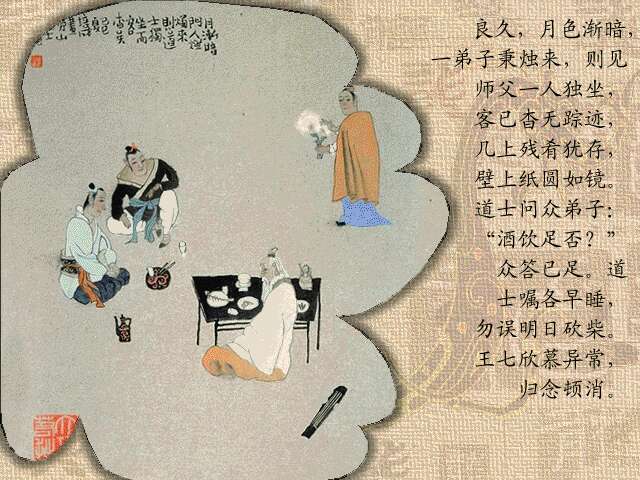 良久，月色渐暗，
一弟子秉烛来，则见
师父一人独坐，
客已杳无踪迹，
几上残肴犹存，
壁上纸圆如镜。
道士问众弟子：
“酒饮足否？”
众答已足。道
士嘱各早睡，
勿误明日砍柴。
王七欣慕异常，
归念顿消。
月漸暗
門人
燭來
則道
士獨
坐而